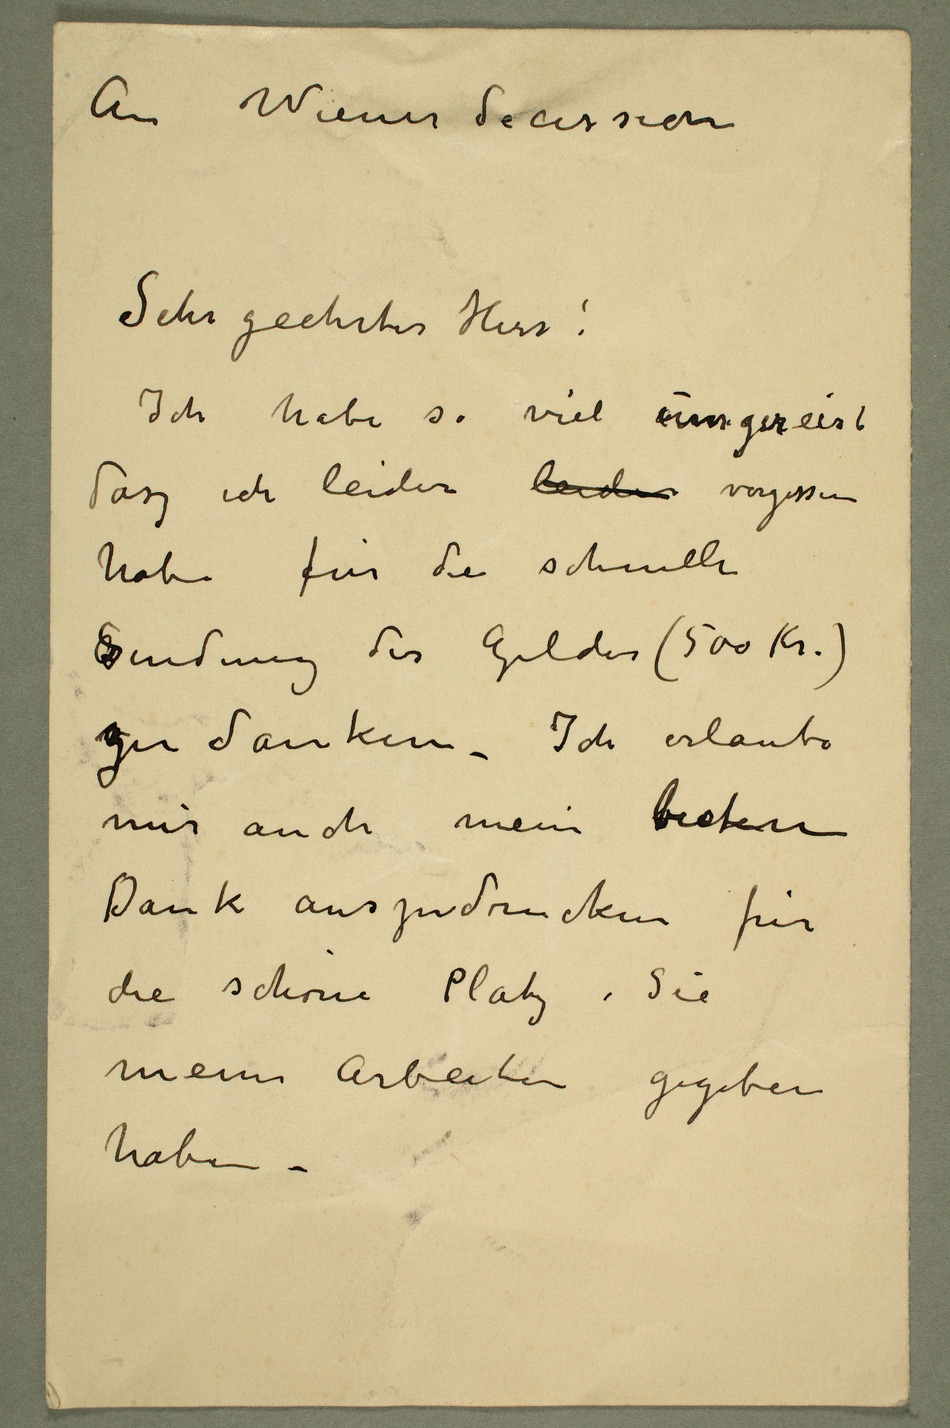 An Wiener Secession
Sehr geehrter Herr!
Ich habe so viel umgereist
dasz ich leider leider vergessen
habe für die schnelle
Sendung des Geldes (500 Kr.)
zu danken – Ich erlaube
mir auch mein besten
Dank auszudrucken für
die schöne Platz. Sie
meine Arbeiten gegeben
haben –